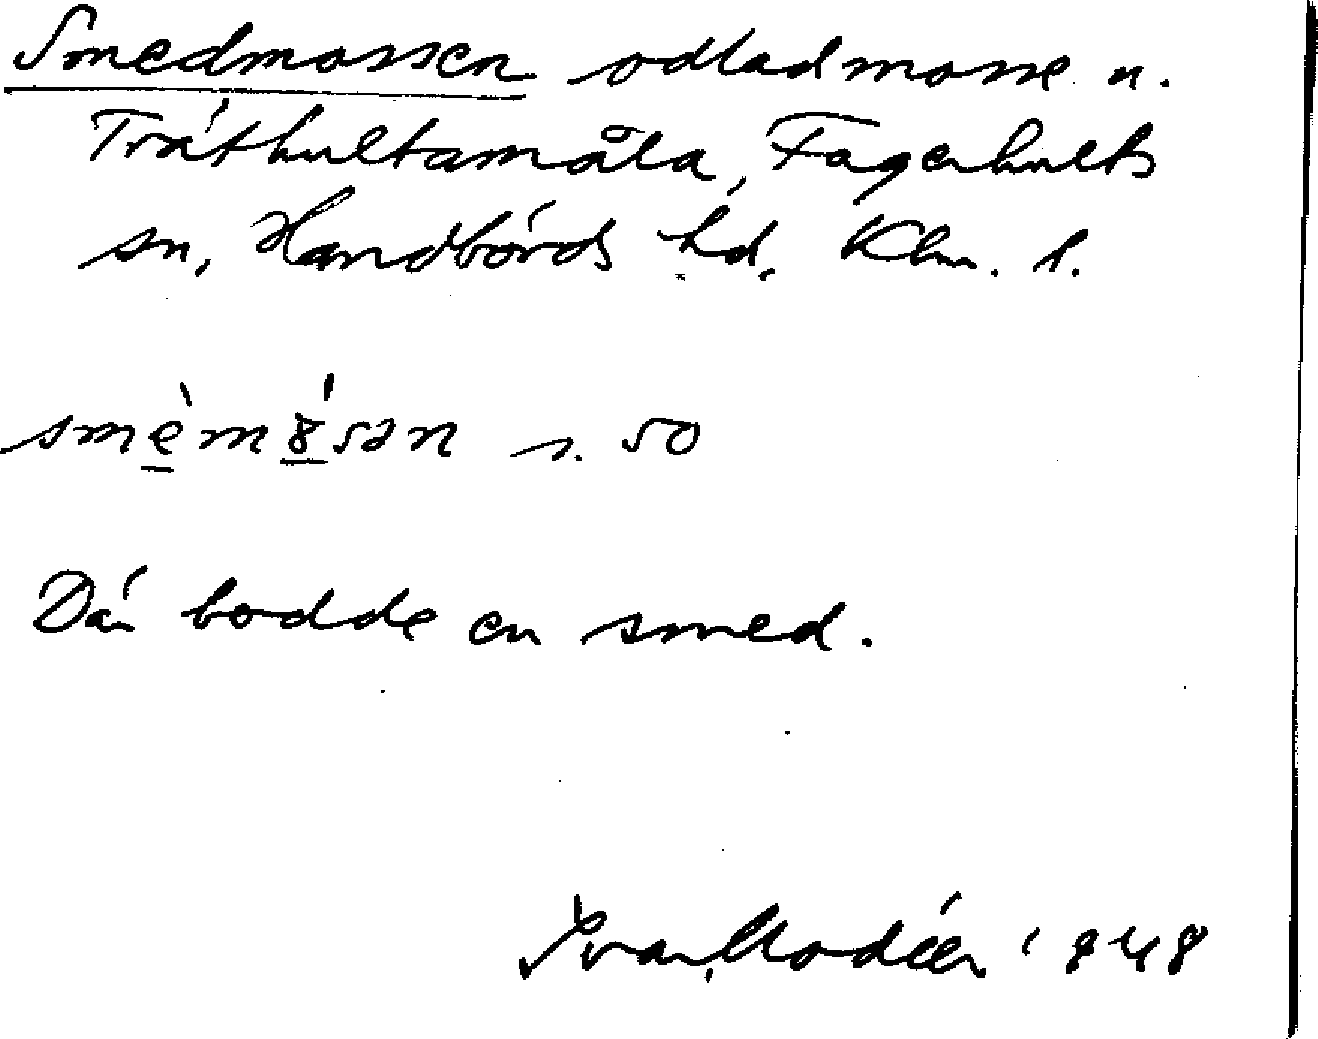 Smedmossen odlad mosse n.
Träthultamåla, Fagerhults
sn, Handbörds hd, Klm. l.
smèmósən s. 50
Där bodde en smed.
Ivar Modéer 1948